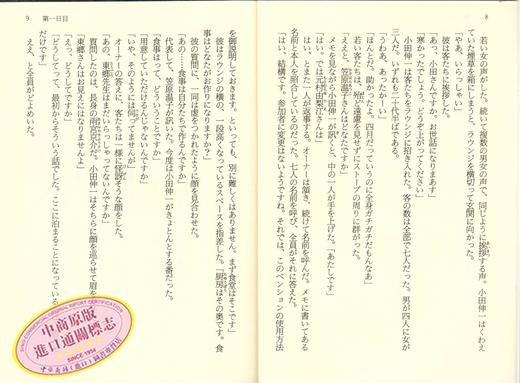 8
若い女の声がした。続いて複数の男女の声で、同じように挨拶する声。小田伸一はくわえ
ていた煙草を箱にしまうと、ラウンジを横切って玄関に向かった。
「やあ、いらっしゃい」
彼は客たちに挨拶した。
「あっ、小田さんですか。お世話になりまあす」
「寒かったでしょう。どうぞ上がってください」
小田伸一は客たちをラウンジに招き入れた。客の数は全部で七人だった。男が四人に女が
三人だ。いずれも二十代半ばである。
「うわあ、あったかーい」
「ほんとだ。助かったよ。四月だっていうのに全身ガチガチだもんなあ」
若い客たちは、殆ど遠慮を見せずにストーブの周りに群がった。
「ええと、笠原温子さんはどなたですか」
メモを見ながら小田伸一が訊くと、中の一人が手を上げた。「あたしです」
「はい、では元村由梨江さんは」
はい、とまた一人が返事する。オーナーは頷き、続けて名前を呼んだ。メモに書いてある
名前と本人を照合しているのだった。七人の名前を呼び、全員がそれに答えた。
「はい、結構です。参加者に変更はないようですね。それでは、このペンションの使用方法
9　第一日目
を御説明しておきます。といっても、別に難しくはありません。まず食堂はそこです」
彼はラウンジの横の、一段高くなっているスペースを指差した。「厨房はその奥です。食
事はどなたがお作りになりますか？」
彼の質問に、一同は虚をつかれたように顔を見合わせた。
「あの……食事は自分たちで作るんですか」
代表して、笠原温子が訊いた。今度は小田伸一がきょとんとする番だった。
「食事はって、どういうことですか」
「用意していただけるんじゃないんですか」
「いや、そのようには伺ってませんが」
オーナーの答えに、客たちは一様に怪訝そうな顔をした。
「あの、東郷先生はまだいらっしゃってないんですか」
質問したのは、長身の雨宮京介だ。小田伸一はそちらに顔を巡らせて眉を
「東郷さんはお見えにはなりませんよ」
「えっ、どうしてですか」
「どうしてって、最初からそういう話でした。ここに泊まることになっている
だけです」
ええ、と全員がどよめいた。
中商原版
進口通關標志
SINCE 1954